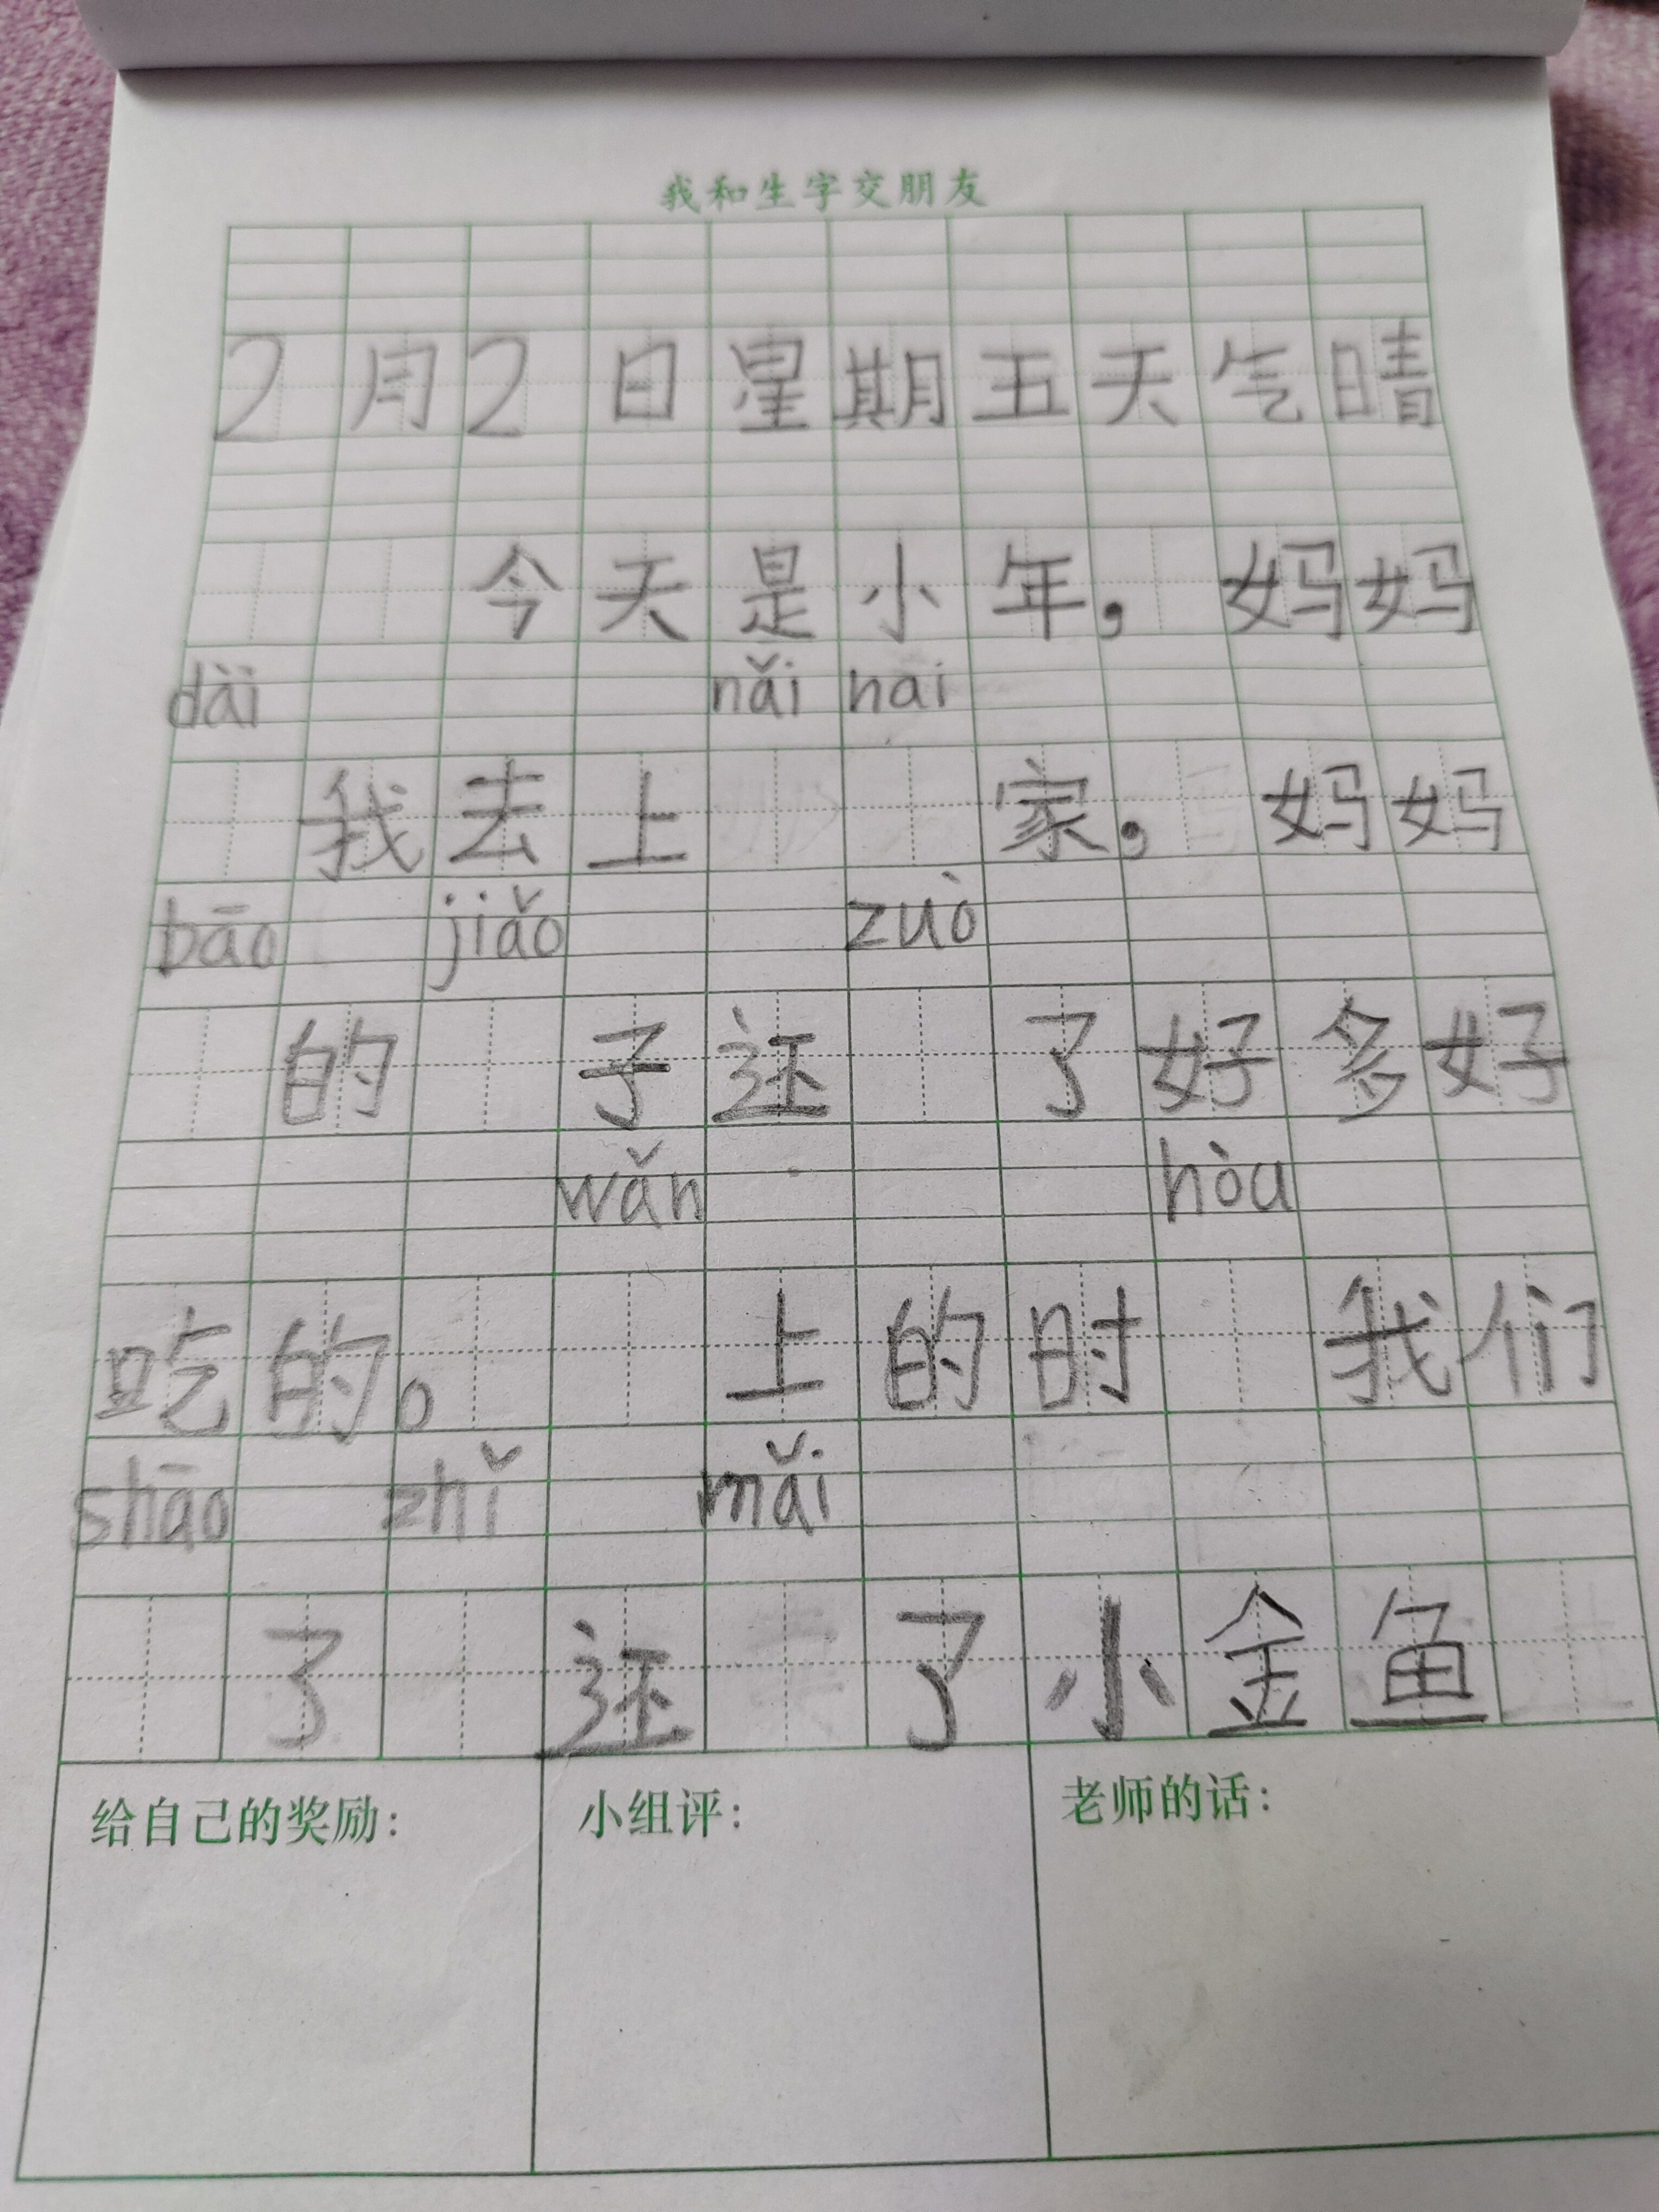 我和生字交朋友
2月2日星期五天气晴
今天是小年，妈妈
dài nǎi nai
我去上 家，妈妈
bāo jiǎo zuò
的 子还 了好多好
wǎn hòu
吃的。 上的时 我们
shāo zhǐ mǎi
了 还 了小金鱼
给自己的奖励：
小组评：
老师的话：